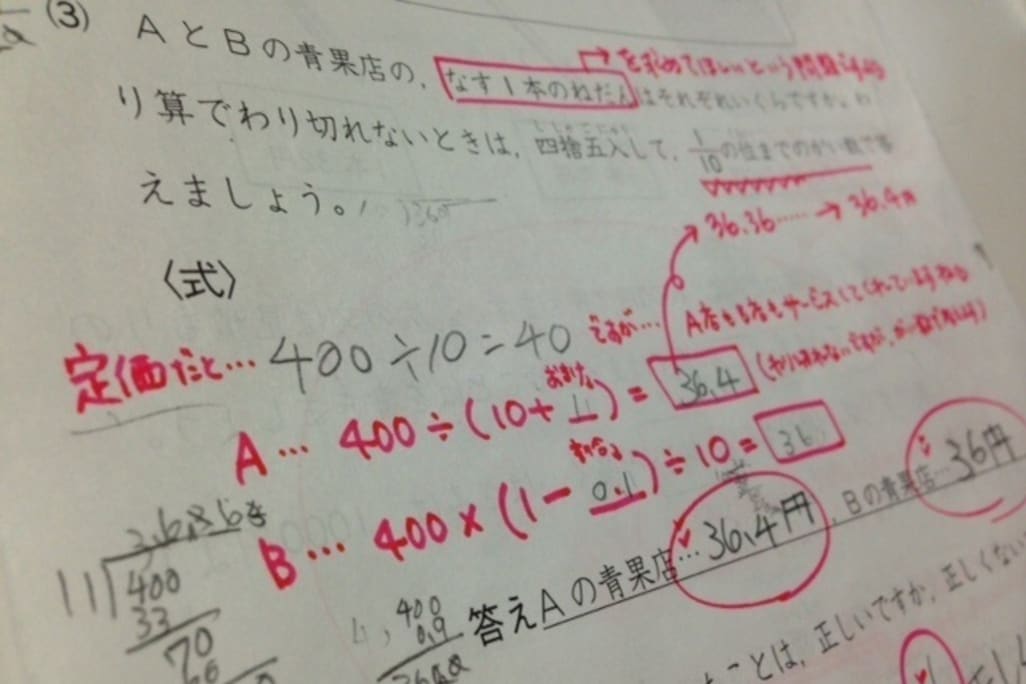 (3) AとBの青果店の,なす1本のねだんはそれぞれいくらですか。わ
を求めてほしいという問題ですね
り算でわり切れないときは,四捨五入して,1/10の位までのがい数で答
えましょう。
36.36…… → 36.4円
〈式〉
定価だと… 400÷10=40 ですが…
A店もB店もサービスしてくれていますね
おまけ
A… 400÷(10+1)=36.4
わりびき
B… 400×(1-0.1)÷10=36
答えAの青果店…36.4円,Bの青果店…36円
11 400
33
70
400
0.9
ことは,正しいですか,正しくない